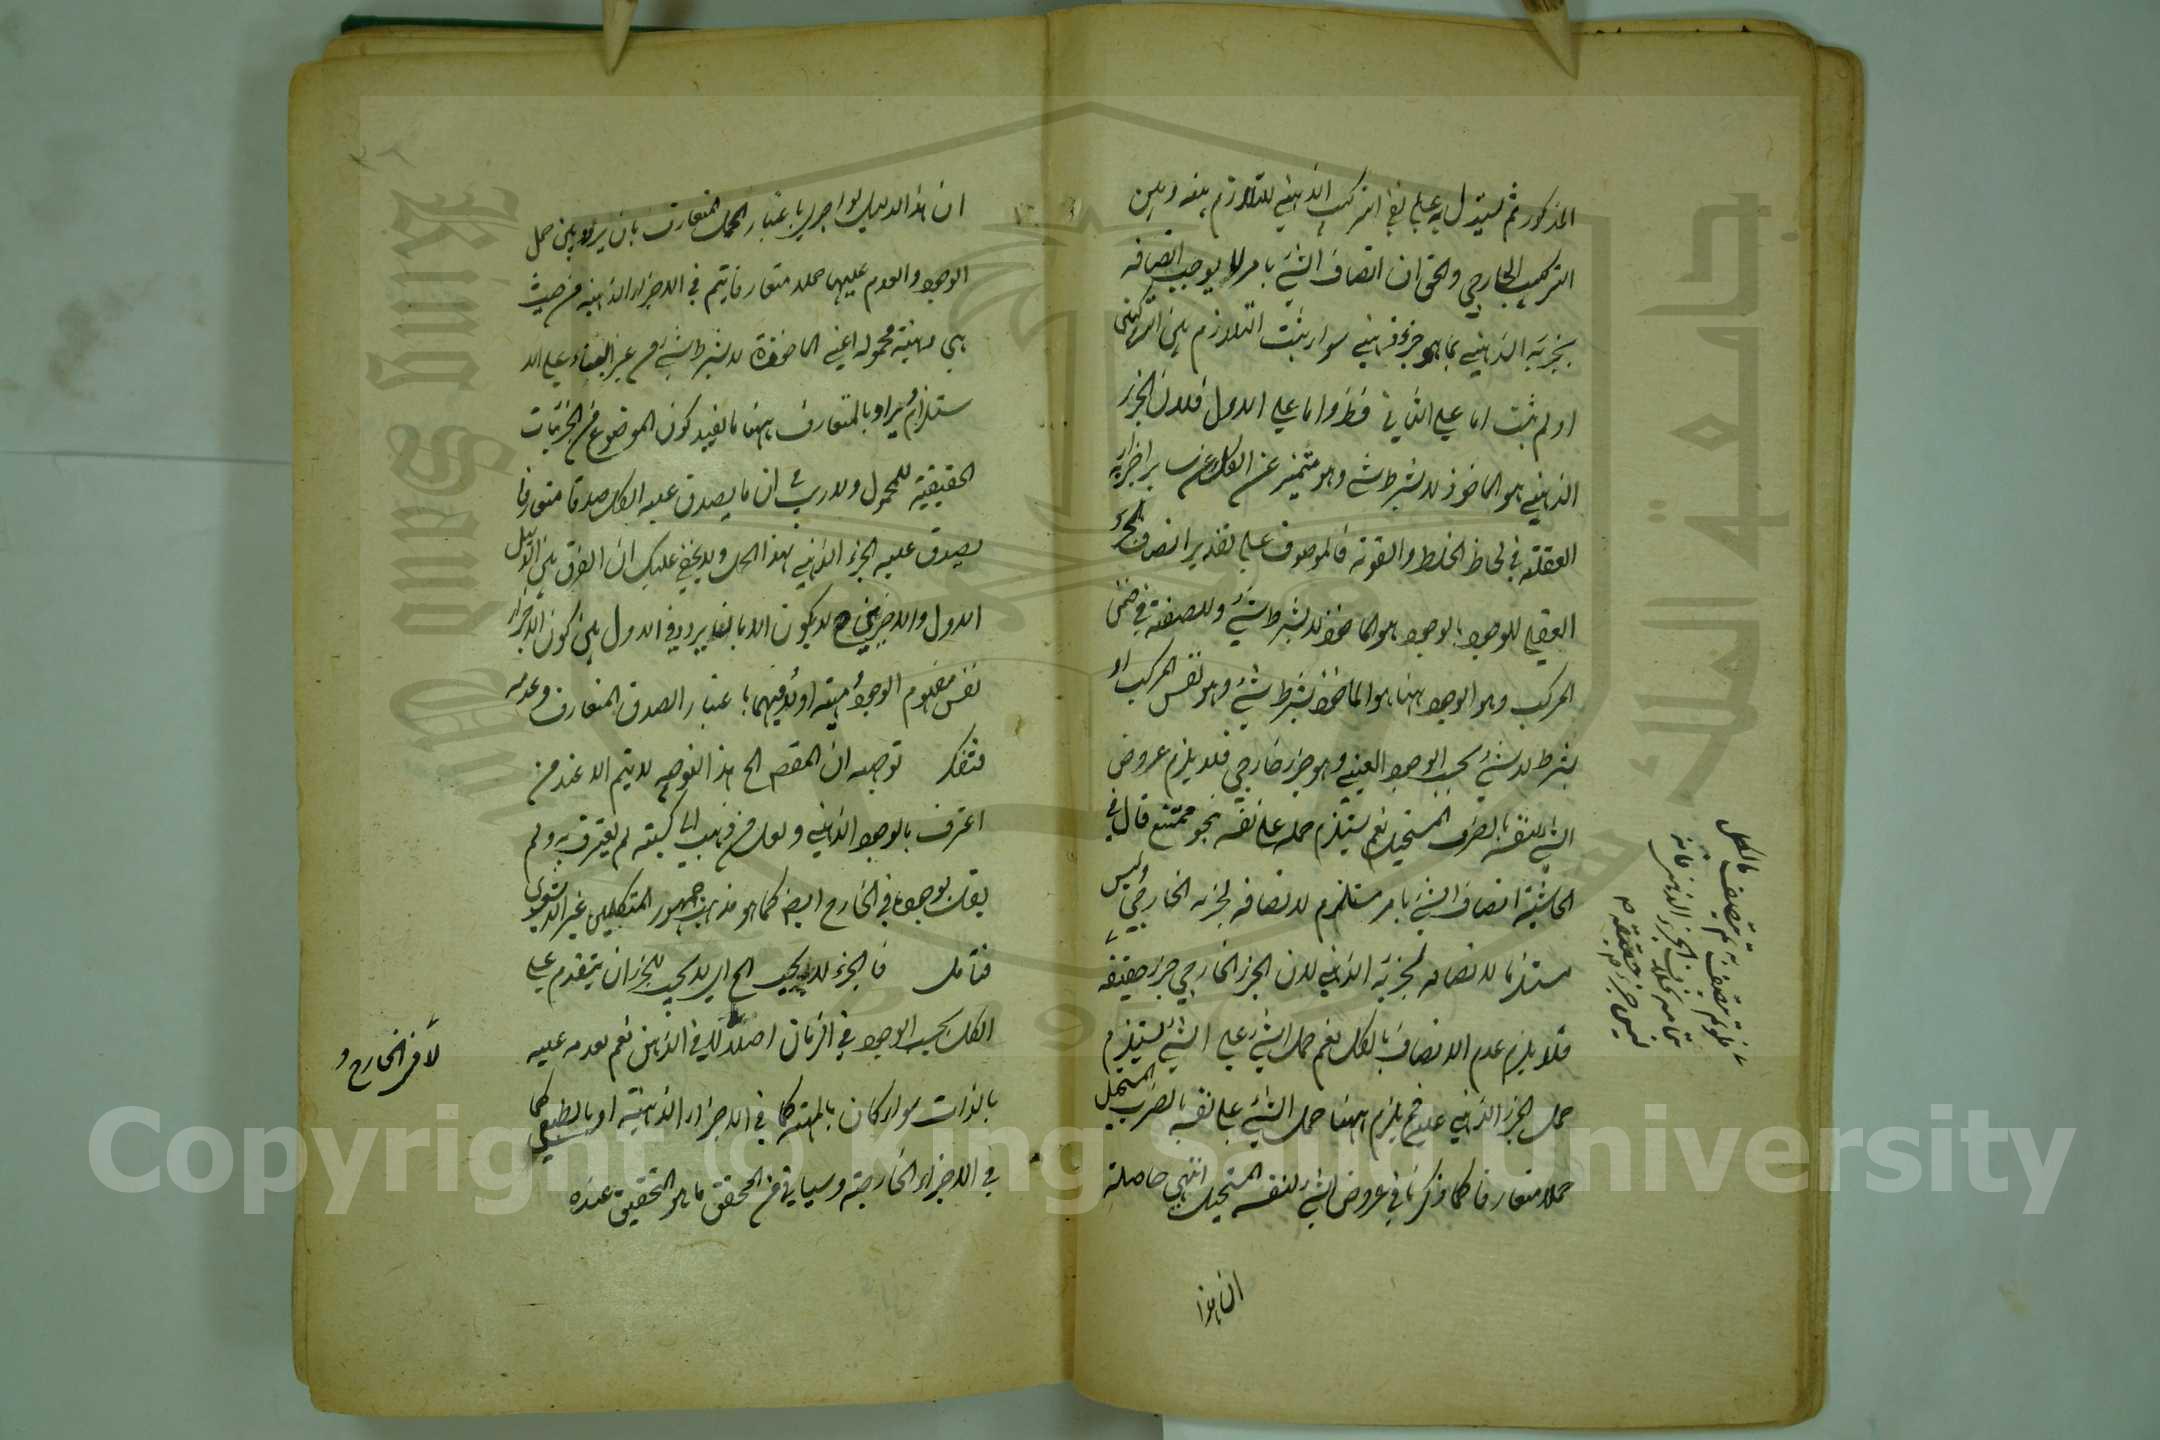 المذكور ثم يستدل به على نفي التركيب الذهني للتلازم بينه وبين
التركيب الخارجي والحق ان اتصاف الشيء بامر لا يوجب اتصافه
بجزئه الذهني بما هو جزء ذهني سواء ثبت التلازم بين التركيبين
او لم يثبت اما على الثاني فظ واما على الاول فلان الجزء
الذهني هو الماخوذ لا بشرط شيء وهو متميز عن الكل وعن سائر اجزائه
العقلية في لحاظ الخلط والتعرية فالموصوف على تقدير اتصاف الجزء
العقلي للوجود بالوجود هو الماخوذ لا بشرط شيء وللصفة في ضمن
المركب وهو الوجود ههنا هو الماخوذ بشرط شيء وهو نفس المركب او
بشرط لا شيء بحسب الوجود العيني وهو جزء خارجي فلا يلزم عروض
الشيء لنفسه بالضرب المستحيل نعم يستلزم حمله على نفسه بنحو ممتنع قال في
الحاشية اتصاف الشيء بامر مستلزم لاتصافه لجزئه الخارجي وليس
مستلزما لاتصافه لجزئه الذهني لان الجزء الخارجي جزء حقيقة
فلا يلزم عدم الاتصاف بالكل نعم حمل الشيء على الشيء يستلزم
حمل الجزء الذهني عليه فح يلزم ههنا حمل الشيء على نفسه بالضرب المستحيل
حملا متعارفا كما ذكرنا في عروض الشيء لنفسه المستحيل انتهى حاصله
ان هذا
فلو لم تتصف به لم تتصف بالكل
بتمامه بخلاف الجزء الذهني فانه
ليس جزء حقيقة
ان هذا الدليل لو اجري باعتبار الحمل المتعارف بان يردد بين حمل
الوجود والعدم عليها حملا متعارفا يتم في الاجزاء الذهنية من حيث
هي ذهنية محمولة اعني الماخوذة لا بشرط شيء من غير البناء على الا
ستلزام ويراد بالمتعارف ههنا ما يفيد كون الموضوع من الجزئيات
الحقيقية للمحمول ولا ريب في ان ما يصدق عليه الكل صدقا متعارفا
يصدق عليه الجزء الذهني بهذا الحمل ولا يخفى عليك ان الفرق بين الدليل
الاول والاخير ح لا يكون الا بان يردد في الاول بين كون الاجزاء
نفس مفهوم الوجود مهيته او لا وفيهما باعتبار الصدق المتعارف وعدمه
فتفكر توجيهه ان المقصم الخ هذا التوجيه لا يتم الا عند من
اعترف بالوجود الذهني ولعل من ذهب الى لم يعترف به ولم
يقل بوجوده في الخارج ايضا كما هو مذهب جمهور المتكلمين غير الاشعري
فتأمل فالجزء لا يجب الخ اي لا يجب للجزء ان يتقدم على
الكل بحسب الوجود في الزمان اصلا في الذهن نعم تقدمه عليه
لا في الخارج و
بالذات سواء كان بالمهية كما في الاجزاء الذهنية او بالطبع كما
في الاجزاء الخارجية وسياتي من المحقق ما هو التحقيق عنده
King Saud University
جامعة الملك سعود
Copyright © King Saud University